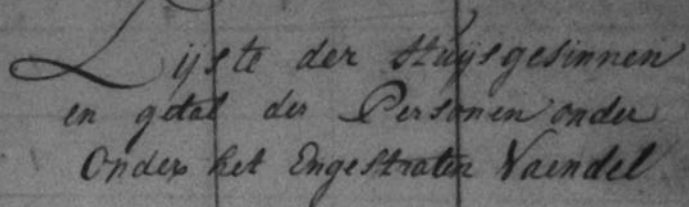 Lijste der Huijsgesinnen
en getal der Personen onder
Onder het Engestraten Vaendel